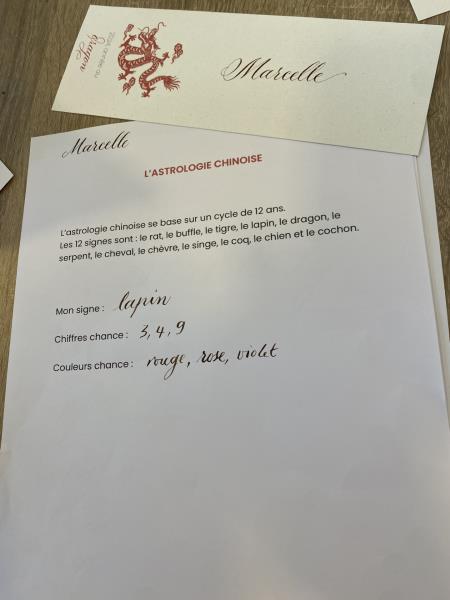 2024 année du
Dragon
Marcelle
Marcelle
L'ASTROLOGIE CHINOISE
L'astrologie chinoise se base sur un cycle de 12 ans.
Les 12 signes sont : le rat, le buffle, le tigre, le lapin, le dragon, le
serpent, le cheval, le chèvre, le singe, le coq, le chien et le cochon.
Mon signe : lapin
Chiffres chance : 3, 4, 9
Couleurs chance : rouge, rose, violet